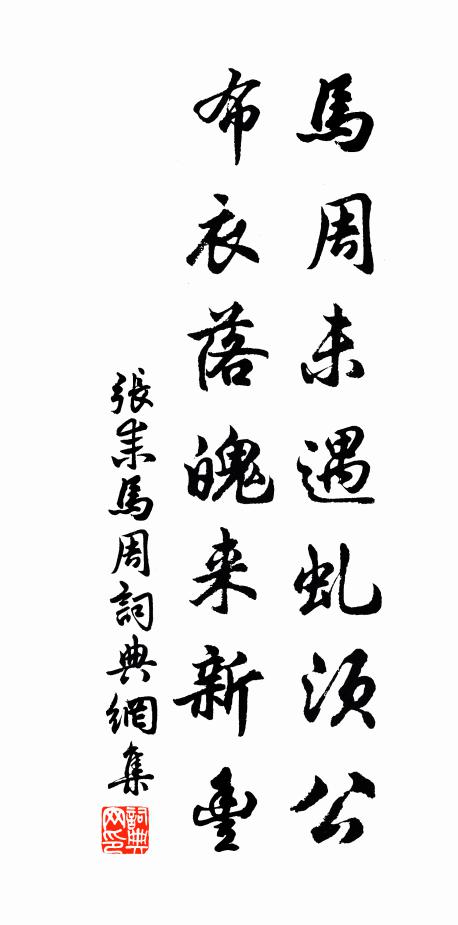 馬周未遇虬湏公
布衣落魄来新豐
張耒馬周詞典網集
詞典网印